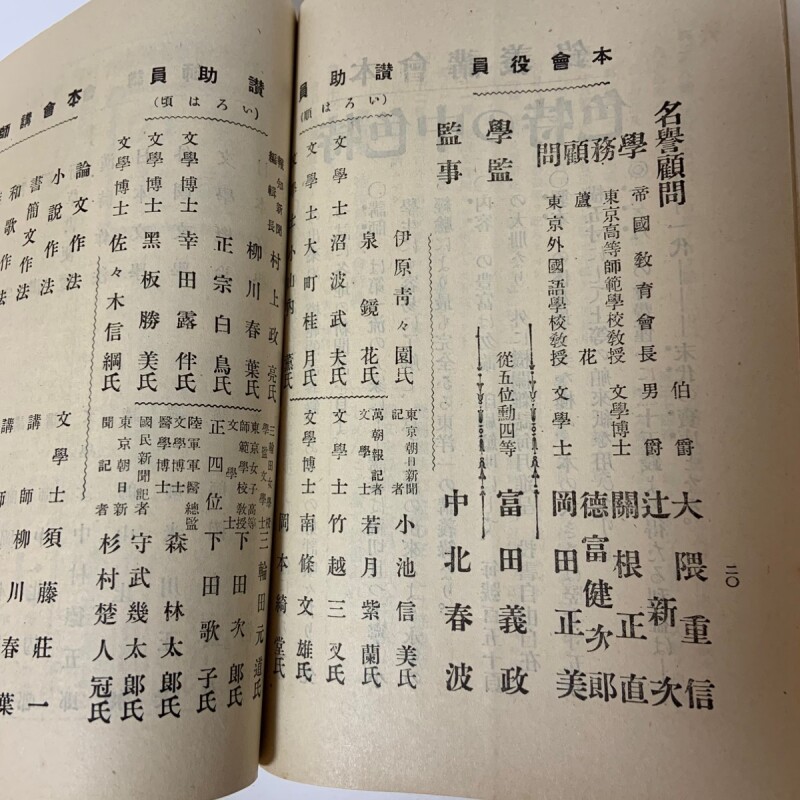 本會役員
名譽顧問
伯爵 大隈重信
帝國教育會長 男爵 辻新次
學務顧問
東京高等師範學校教授 文學博士 關根正直
蘆花 德富健次郎
東京外國語學校教授 文學士 岡田正美
學監
從五位勳四等 富田義政
監事
中北春波
二〇
讃助員
(いろは順)
伊原青々園氏
泉鏡花氏
文學士 沼波武夫氏
文學士 大町桂月氏
小山內薫氏
東京朝日新聞記者 小池信美氏
萬朝報記者 若月紫蘭氏
文學士 竹越三叉氏
文學博士 南條文雄氏
岡本綺堂氏
讃助員
(いろは順)
報知新聞編輯長 村上政亮氏
柳川春葉氏
正宗白鳥氏
文學博士 幸田露伴氏
文學博士 黑板勝美氏
文學博士 佐々木信綱氏
三輪田女學校學監文學士 三輪田元道氏
東京女子高等師範學校教授文學士 下田次郎氏
正四位 下田歌子氏
陸軍軍醫總監文學博士醫學博士 森林太郎氏
國民新聞記者 守武幾太郎氏
東京朝日新聞記者 杉村楚人冠氏
本會講師
論文作法
小說作法
書簡文作法
和歌作法
文學士 須藤莊一
講師 柳川春葉
講師